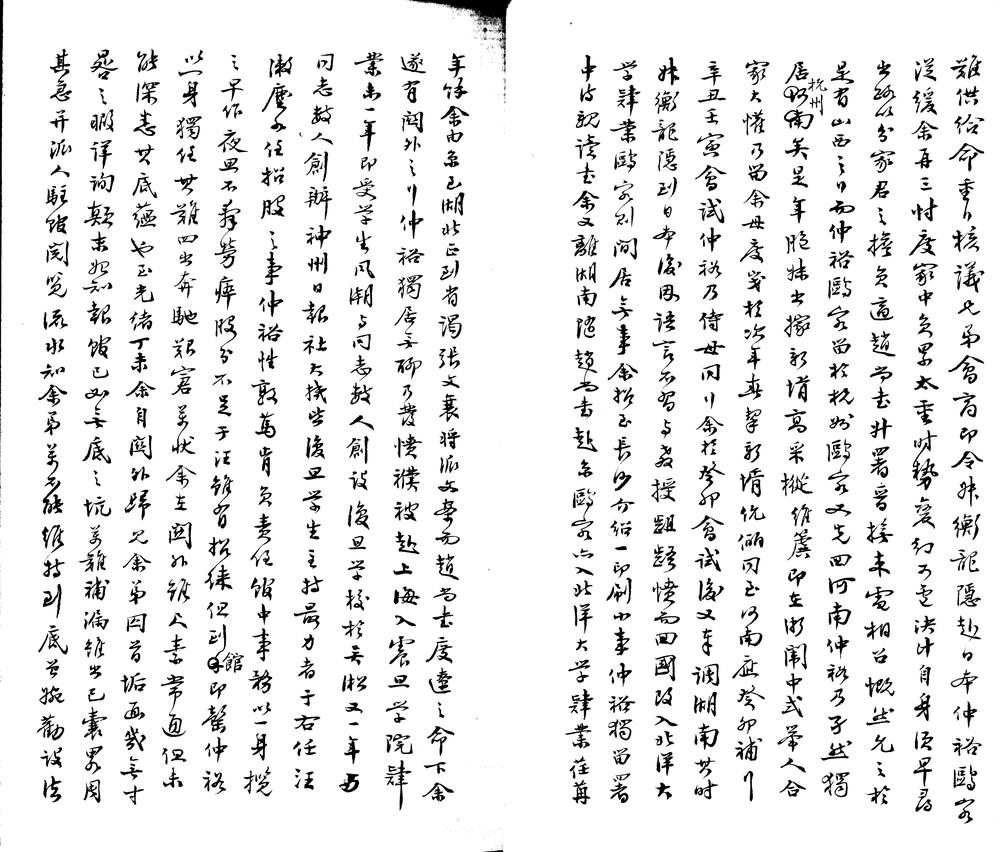 難供給命重行核議七弟會商即令妹衡龍隱赴日本仲裕鷗客
從緩余再三忖度家中負累太重時勢變幻不定決計自身須早尋
出路以分家君之擔負適趙尚書升署晉撫來電相召慨然允之於
是有山西之行而仲裕鷗客留於杭州鷗客又先回河南仲裕乃孑然獨
居杭州矣是年脆妹出嫁新壻高采樅維巖即在浙闈中式舉人合
家大懽乃留余母度歲於次年春挈新壻伉儷同至河南應癸卯補行
辛丑壬寅會試仲裕乃侍母同行余於癸卯會試後又奉調湖南其時
妹衡龍隱到日本後因語言不習與教授齟齬憤而回國改入北洋大
學肄業鷗客則閒居無事余招至長沙介紹一印刷小事仲裕獨留署
中侍親讀書余又離湖南隨趙尚書赴京鷗客亦入北洋大學肄業荏苒
年餘余由京已湖北正到省謁張文襄將派文案而趙尚書度遼之命下余
遂有關外之行仲裕獨居無聊乃發憤襆被赴上海入震旦學院肄
業未一年即受學生風潮與同志數人創設復旦學校於吳淞又一年與
同志數人創辦神州日報社大抵皆復旦學生主持最力者于右任汪
漱塵分任招股之事仲裕性敦篤肯負責任館中事務以一身攬
之早作夜思不辭勞瘁股分不足于汪雖有招徠但到館即罄仲裕
以一身獨任其難四出奔馳艱窘萬狀余在關外雖具素常通但未
能深悉其底蘊也至光緒丁未余自關外歸見余弟囚首垢面幾無寸
晷之暇詳詢顛末始知報館已如無底之坑萬難補漏雖出己囊另周
其急并派人駐館閱覽流水知余弟萬不能維持到底曾婉勸設法